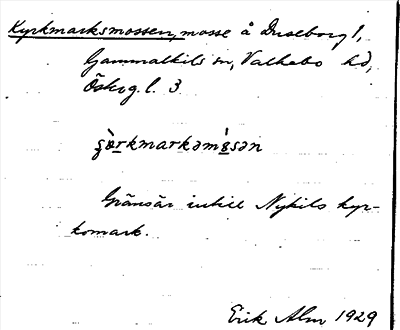 Kyrkmarksmossen, mosse å Duseborg 1,
Gammalkils sn, Valkebo hd,
Österg. l. 3
Gränsar intill Nykils kyr-
komark.
Erik Alm 1929